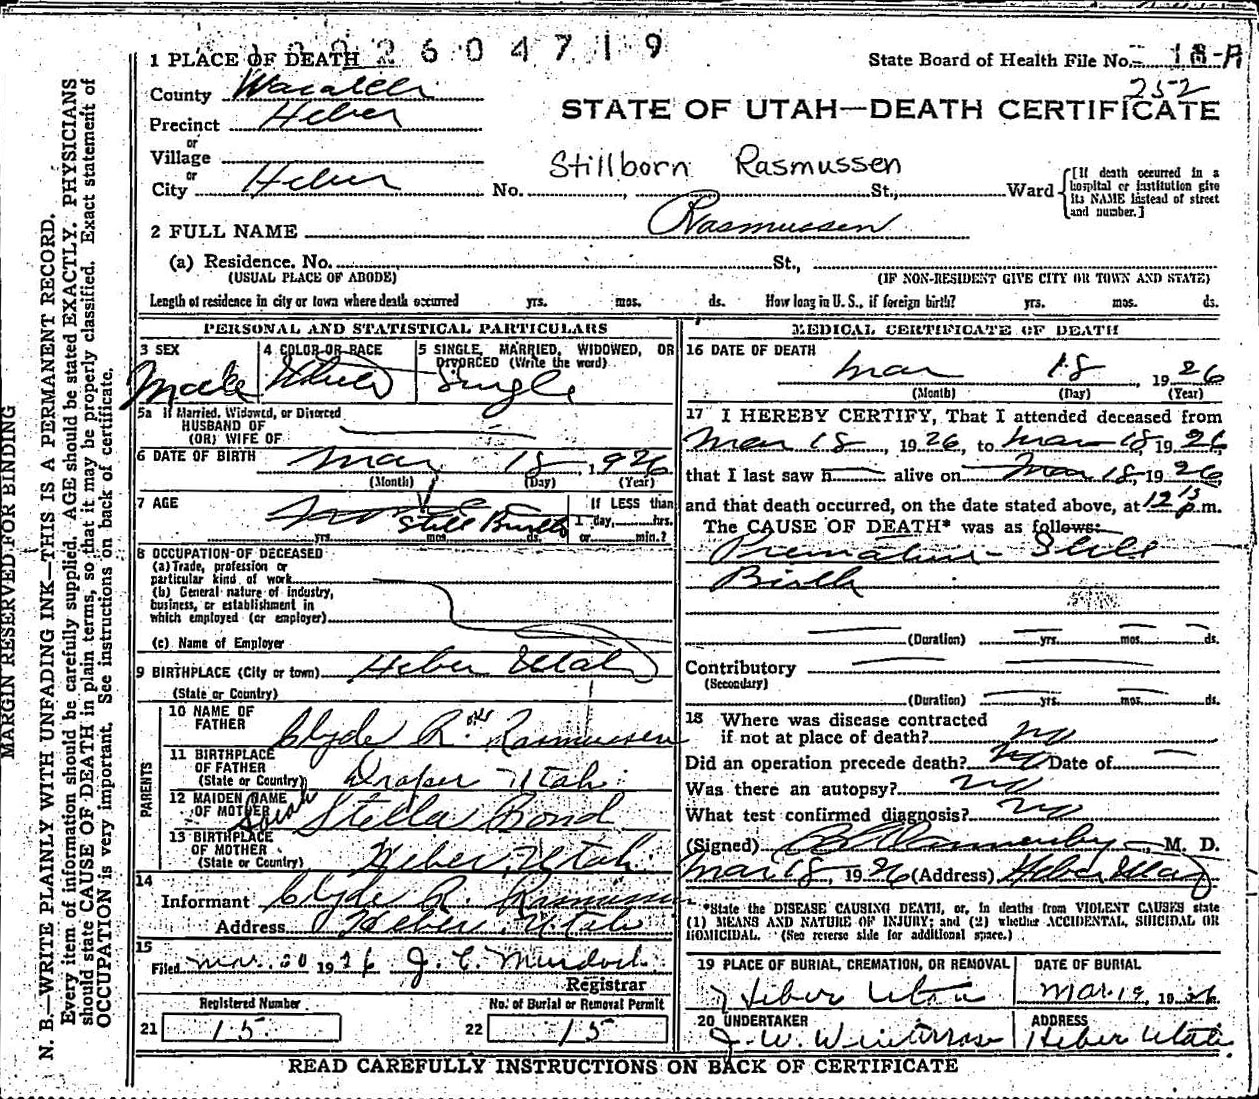 1 PLACE OF DEATH 2604719
State Board of Health File No. 18-A
252
County Wasatch
STATE OF UTAH—DEATH CERTIFICATE
Precinct Heber
or
Village
or
City Heber No. , St., Ward
Stillborn Rasmussen
[If death occurred in a
hospital or institution give
its NAME instead of street
and number.]
2 FULL NAME Rasmussen
(a) Residence. No. St.,
(USUAL PLACE OF ABODE) (IF NON-RESIDENT GIVE CITY OR TOWN AND STATE)
Length of residence in city or town where death occurred yrs. mos. ds. How long in U. S., if foreign birth? yrs. mos. ds.
PERSONAL AND STATISTICAL PARTICULARS
3 SEX Male
4 COLOR OR RACE White
5 SINGLE, MARRIED, WIDOWED, OR
DIVORCED (Write the word)
Single
5a If Married, Widowed, or Divorced
HUSBAND OF
(OR) WIFE OF
6 DATE OF BIRTH Mar 18 1926
(Month) (Day) (Year)
7 AGE Still Birth
yrs. mos. ds.
If LESS than
1 day, hrs.
or min.?
8 OCCUPATION OF DECEASED
(a) Trade, profession or
particular kind of work
(b) General nature of industry,
business, or establishment in
which employed (or employer)
(c) Name of Employer
9 BIRTHPLACE (City or town) Heber Utah
(State or Country)
PARENTS
10 NAME OF
FATHER Clyde R. Rasmussen
11 BIRTHPLACE
OF FATHER
(State or Country) Draper Utah
12 MAIDEN NAME
OF MOTHER Sarah Stella Bond
13 BIRTHPLACE
OF MOTHER
(State or Country) Heber, Utah
14
Informant Clyde R. Rasmussen
Address Heber, Utah
15
Filed Mar. 20 1926 J. C. Murdoch
Registrar
Registered Number No. of Burial or Removal Permit
21 15 22 15
MEDICAL CERTIFICATE OF DEATH
16 DATE OF DEATH
Mar 18, 1926
(Month) (Day) (Year)
17 I HEREBY CERTIFY, That I attended deceased from
Mar 18, 1926, to Mar 18, 1926,
that I last saw h alive on Mar 18, 1926,
and that death occurred, on the date stated above, at 12 15 p.m.
The CAUSE OF DEATH* was as follows:
Premature Still
Birth
(Duration) yrs. mos. ds.
Contributory
(Secondary)
(Duration) yrs. mos. ds.
18 Where was disease contracted
if not at place of death? no
Did an operation precede death? no Date of
Was there an autopsy? no
What test confirmed diagnosis? no
(Signed) M. D.
Mar 18, 1926 (Address) Heber Utah
*State the DISEASE CAUSING DEATH, or, in deaths from VIOLENT CAUSES state
(1) MEANS AND NATURE OF INJURY; and (2) whether ACCIDENTAL, SUICIDAL OR
HOMICIDAL. (See reverse side for additional space.)
19 PLACE OF BURIAL, CREMATION, OR REMOVAL DATE OF BURIAL
Heber Utah Mar. 19, 1926
20 UNDERTAKER ADDRESS
J. W. Winterrose Heber Utah
READ CAREFULLY INSTRUCTIONS ON BACK OF CERTIFICATE
MARGIN RESERVED FOR BINDING
N. B.—WRITE PLAINLY WITH UNFADING INK—THIS IS A PERMANENT RECORD.
Every item of information should be carefully supplied. AGE should be stated EXACTLY. PHYSICIANS
should state CAUSE OF DEATH in plain terms, so that it may be properly classified. Exact statement of
OCCUPATION is very important. See instructions on back of certificate.